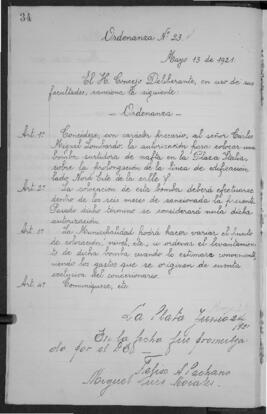 34
Ordenanza Nº 23
Mayo 13 de 1921
El H. Concejo Deliberante, en uso de sus
facultades, sanciona la siguiente
— Ordenanza —
Art. 1º Concédese, con carácter precario, al señor Carlos
Miguel Lombardo, la autorización para colocar una
bomba surtidora de nafta en la Plaza Italia,
sobre la prolongación de la línea de edificación
lado Nord Este de la calle
Art. 2º La colocación de esta bomba deberá efectuarse
dentro de los seis meses de sancionada la presente.
Pasado dicho término se considerará nula dicha
autorización.
Art. 3º La Municipalidad podrá hacer variar el punto
de colocación, nivel, etc., u ordenar el levantamien-
to de dicha bomba cuando lo estimare conveniente,
siendo los gastos que se originen de cuenta
exclusiva del concesionario.
Art. 4º Comuníquese, etc.
La Plata Junio 24
1921
En la fecha fue promulga
do por el
A. Pachano
Miguel Luis Morales.